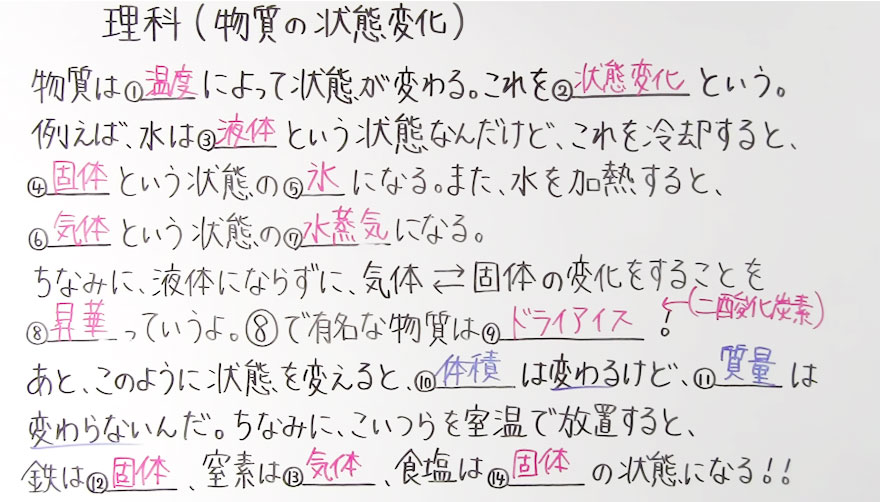 理科(物質の状態変化)
物質は①温度によって状態が変わる。これを②状態変化という。
例えば、水は③液体という状態なんだけど、これを冷却すると、
④固体という状態の⑤氷になる。また、水を加熱すると、
⑥気体という状態の⑦水蒸気になる。
ちなみに、液体にならずに、気体⇄固体の変化をすることを
⑧昇華っていうよ。⑧で有名な物質は⑨ドライアイス!←(二酸化炭素)
あと、このように状態を変えると、⑩体積は変わるけど、⑪質量は
変わらないんだ。ちなみに、こいつらを室温で放置すると、
鉄は⑫固体、窒素は⑬気体、食塩は⑭固体の状態になる!!